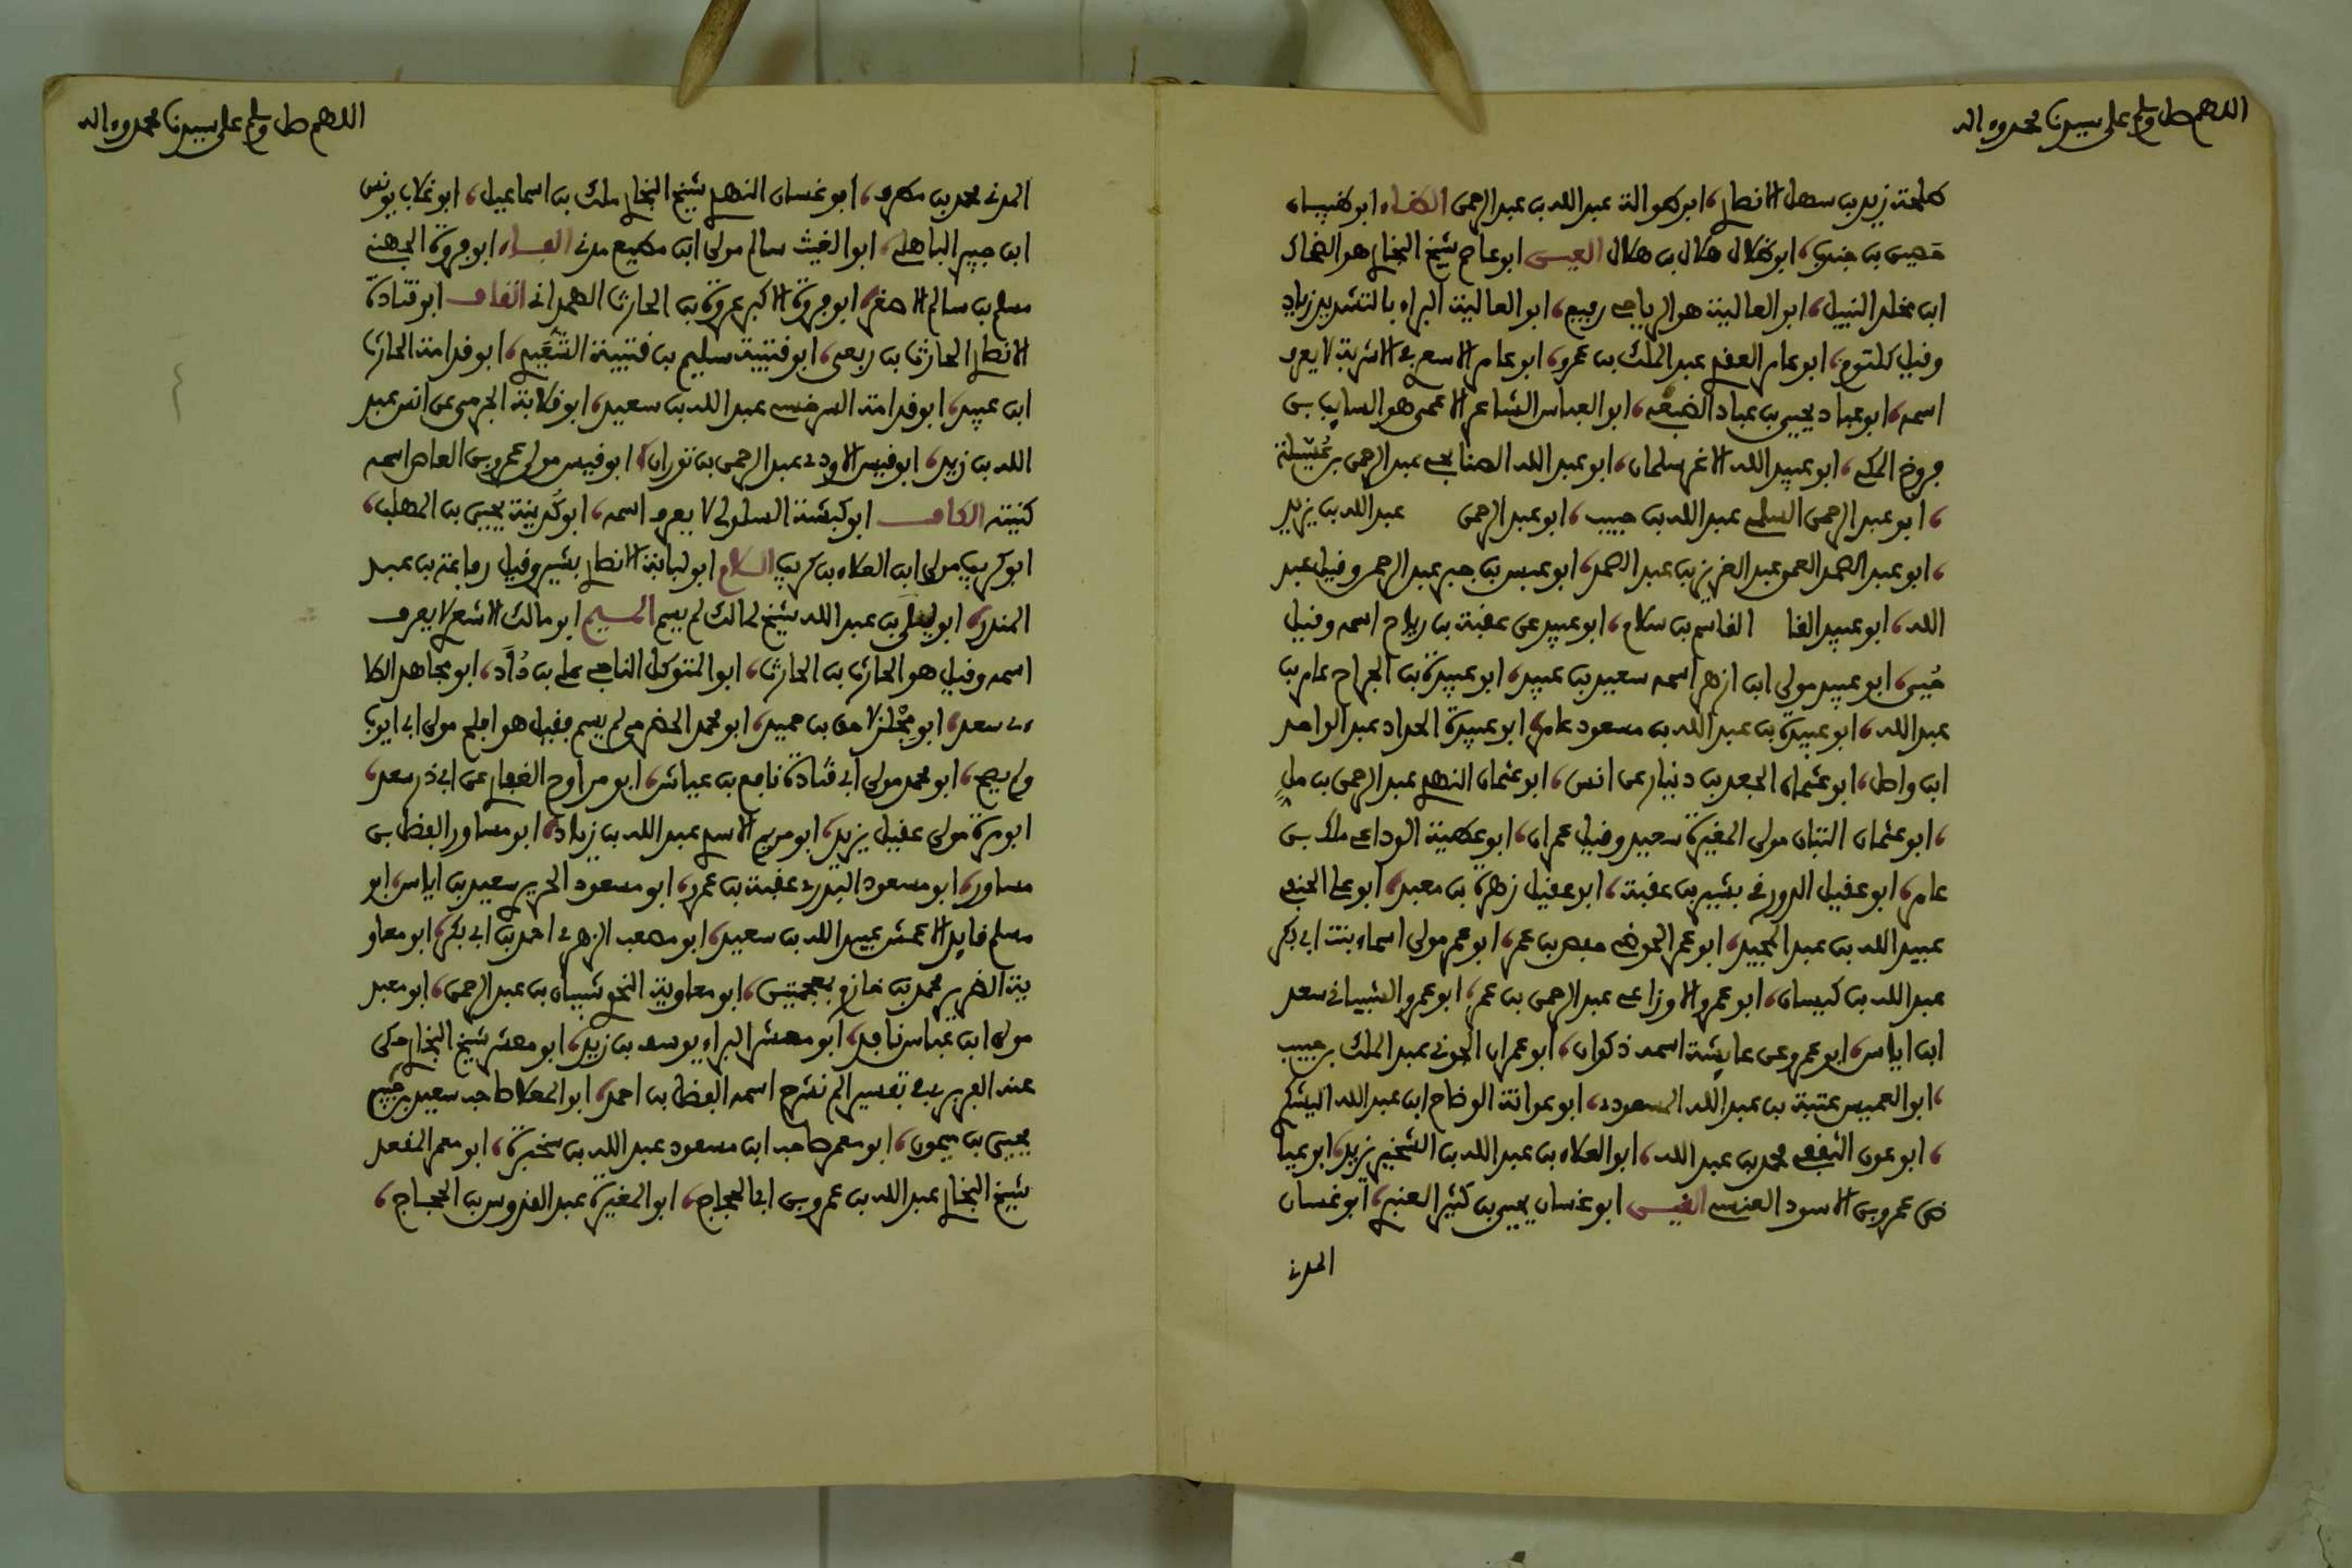 اللهم صل وسلم على سيدنا محمد وءاله
طلحة زيد بن سهل الانصاري، ابو طوالة عبد الله بن عبد الرحمن الظاء ابو ظبيان
حصين بن جندب، ابو ظلال هلال بن هلال العين ابو عاصم شيخ البخاري هو الضحاك
ابن مخلد النبيل، ابو العالية هو الرياحي رفيع، ابو العالية البراء بالتشديد زياد
وقيل كلثوم، ابو عامر العقدي عبد الملك بن عمرو، ابو عامر الاشعري الاشربة لا يعرف
اسمه، ابو عباد يحيى بن عباد الضبعي، ابو العباس الشاعر الاعمى هو السايب بن
فروخ المكي، ابو عبيد الله الاغر سلمان، ابو عبد الله الصنابحي عبد الرحمن بن عُسَيلة
، ابو عبد الرحمن السلمي عبد الله بن حبيب، ابو عبد الرحمن عبد الله بن يزيد
، ابو عبد الصمد العمي عبد العزيز بن عبد الصمد، ابو عبس بن جبر عبد الرحمن وقيل عبد
الله، ابو عبيد الفا القاسم بن سلام، ابو عبيد عن عقبة بن رباح اسمه وقيل
حُيَي، ابو عبيد مولى ابن ازهر اسمه سعيد بن عبيد، ابو عبيدة بن الجراح عامر بن
عبد الله، ابو عبيدة بن عبد الله بن مسعود عامر، ابو عبيدة الحداد عبد الواحد
ابن واصل، ابو عثمان الجعد بن دينار عن انس، ابو عثمان النهدي عبد الرحمن بن مل
، ابو عثمان التبان مولى المغيرة سعيد وقيل عمران، ابو عطية الوداعي ملك بن
عامر، ابو عقيل الدورقي بشير بن عقبة، ابو عقيل زهرة بن معبد، ابو علي الحنفي
عبيد الله بن عبد المجيد، ابو عمر الحوضي حفص بن عمر، ابو عمر مولى اسماء بنت ابي بكر
عبد الله بن كيسان، ابو عمرو الاوزاعي عبد الرحمن بن عمرو، ابو عمرو الشيباني سعد
ابن اياس، ابو عمرو عن عايشة اسمه ذكوان، ابو عمران الجوني عبد الملك بن حبيب
، ابو العميس عتبة بن عبد الله المسعودي، ابو عوانة الوضاح ابن عبد الله اليشكري
، ابو عون الثقفي محمد بن عبد الله، ابو العلاء بن عبد الله بن الشخير يزيد، ابو عيا
ض عمرو بن الاسود العنسي الغين ابو غسان يحيى بن كثير العنبري، ابو غسان
المدني
اللهم صل وسلم على سيدنا محمد وءاله
المدني محمد بن مطرف، ابو غسان النهدي شيخ البخاري ملك بن اسماعيل، ابو غلاب يونس
ابن جبير الباهلي، ابو الغيث سالم مولى ابن مطيع مدني الفاء ابو فروة الجهني
مسلم بن سالم الاصغر، ابو فروة الاكبر عروة بن الحارث الهمداني القاف ابو قتادة
الانصاري الحارث بن ربعي، ابو قتيبة سليم بن قتيبة الشَّعِيري، ابو قدامة الحارث
ابن عبيد، ابو قدامة السرخسي عبد الله بن سعيد، ابو قلابة الجرمي عن انس عبد
الله بن زيد، ابو قيس الاودي عبد الرحمن بن ثوران، ابو قيس مولى عمرو بن العاص اسمه
كنيته الكاف ابو كبشة السلولي لا يعرف اسمه، ابو كُدينة يحيى بن المهلب،
ابو كريب مولى ابن العلاء بن كريب اللام ابو لبابة الانصاري بشير وقيل رفاعة بن عبد
المنذر، ابو ليلى بن عبد الله شيخ لمالك لم يسم الميم ابو مالك الاشعري لا يعرف
اسمه وقيل هو الحارث بن الحارث، ابو المتوكل الناجي علي بن دُاَد، ابو مجاهد الطا
ءي سعد، ابو مِجْلز لاحق بن حميد، ابو محمد الحضرمي لم يسم فقيل هو افلح مولى ابي ايوب
ولم يصح، ابو محمد مولى ابي قتادة نافع بن عياش، ابو مراوح الغفاري عن ابي ذر سعد،
ابو مرة مولى عقيل يزيد، ابو مريم الاسدي عبد الله بن زياد، ابو مساور الفضل بن
مساور، ابو مسعود البدري عقبة بن عمرو، ابو مسعود الجريري سعيد بن اياس، ابو
مسلم قايد الاعمش عبيد الله بن سعيد، ابو مصعب الزهري احمد بن ابي بكر، ابو معاو
ية الضرير محمد بن خازم بمعجمتين، ابو معاوية النحوي شيبان بن عبد الرحمن، ابو معبد
مولى ابن عباس نافد، ابو معشر البراء يوسف بن زيد، ابو معشر شيخ البخاري حكى
عنه الفربري في تفسير الم نشرح اسمه الفضل بن احمد، ابو المعلا صاحب سعيد بن جبير
يحيى بن ميمون، ابو معمر صاحب ابن مسعود عبد الله بن سخبرة، ابو معمر المقعد
شيخ البخاري عبد الله بن عمرو بن ابي الحجاج، ابو المغيرة عبد القدوس بن الحجاج،